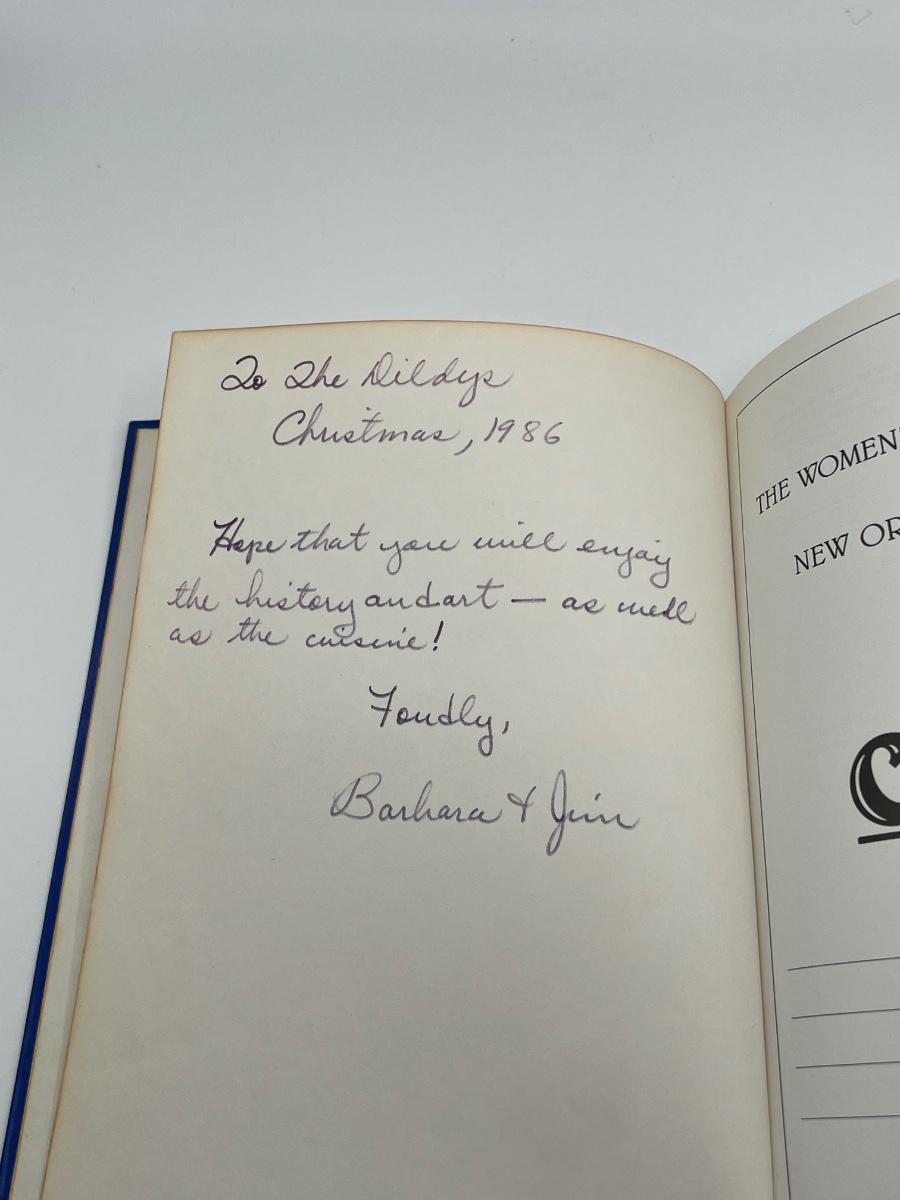 To The Dildys
Christmas, 1986
Hope that you will enjoy
the history and art — as well
as the cuisine!
Fondly,
Barbara & Jim
THE WOMEN'
NEW OR
C